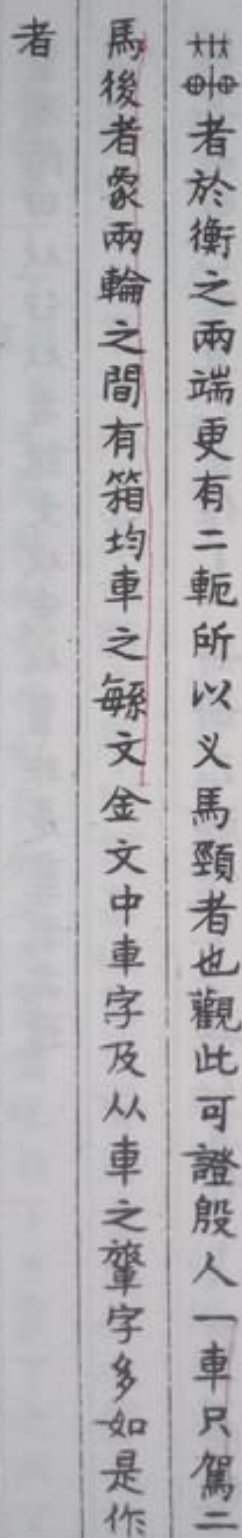 者於衡之兩端更有二軛所以义馬頸者也觀此可證殷人一車只駕二
馬後者象兩輪之間有箱均車之緐文金文中車字及从車之輦字多如是作
者